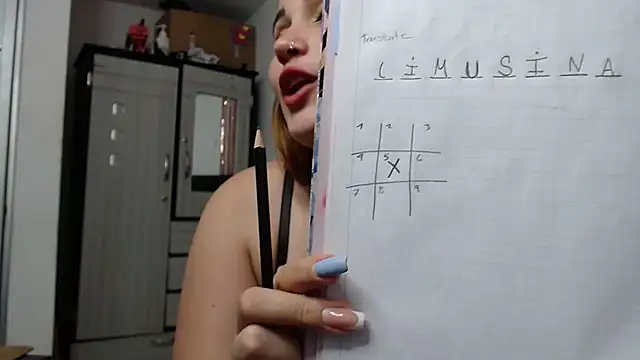 L I M U S I N A
1 2 3
4 5 X 6
7 8 9